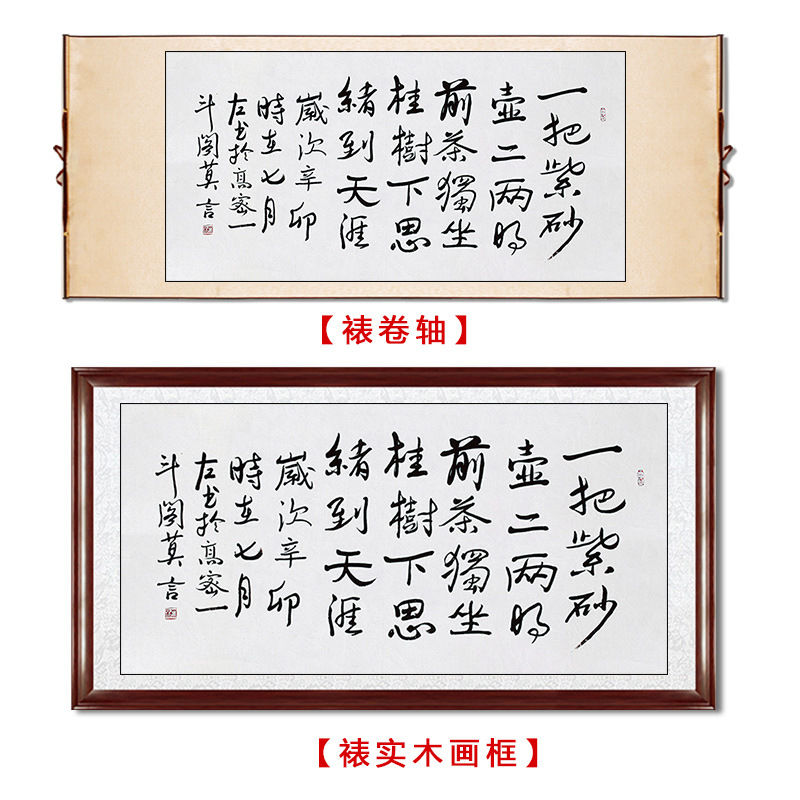 一把紫砂
壶二两明
前茶獨坐
桂樹下思
緒到天涯
歲次辛卯
時在七月
左书於高密一
斗阁莫言
【裱卷轴】
一把紫砂
壶二两明
前茶獨坐
桂樹下思
緒到天涯
歲次辛卯
時在七月
左书於高密一
斗阁莫言
【裱实木画框】